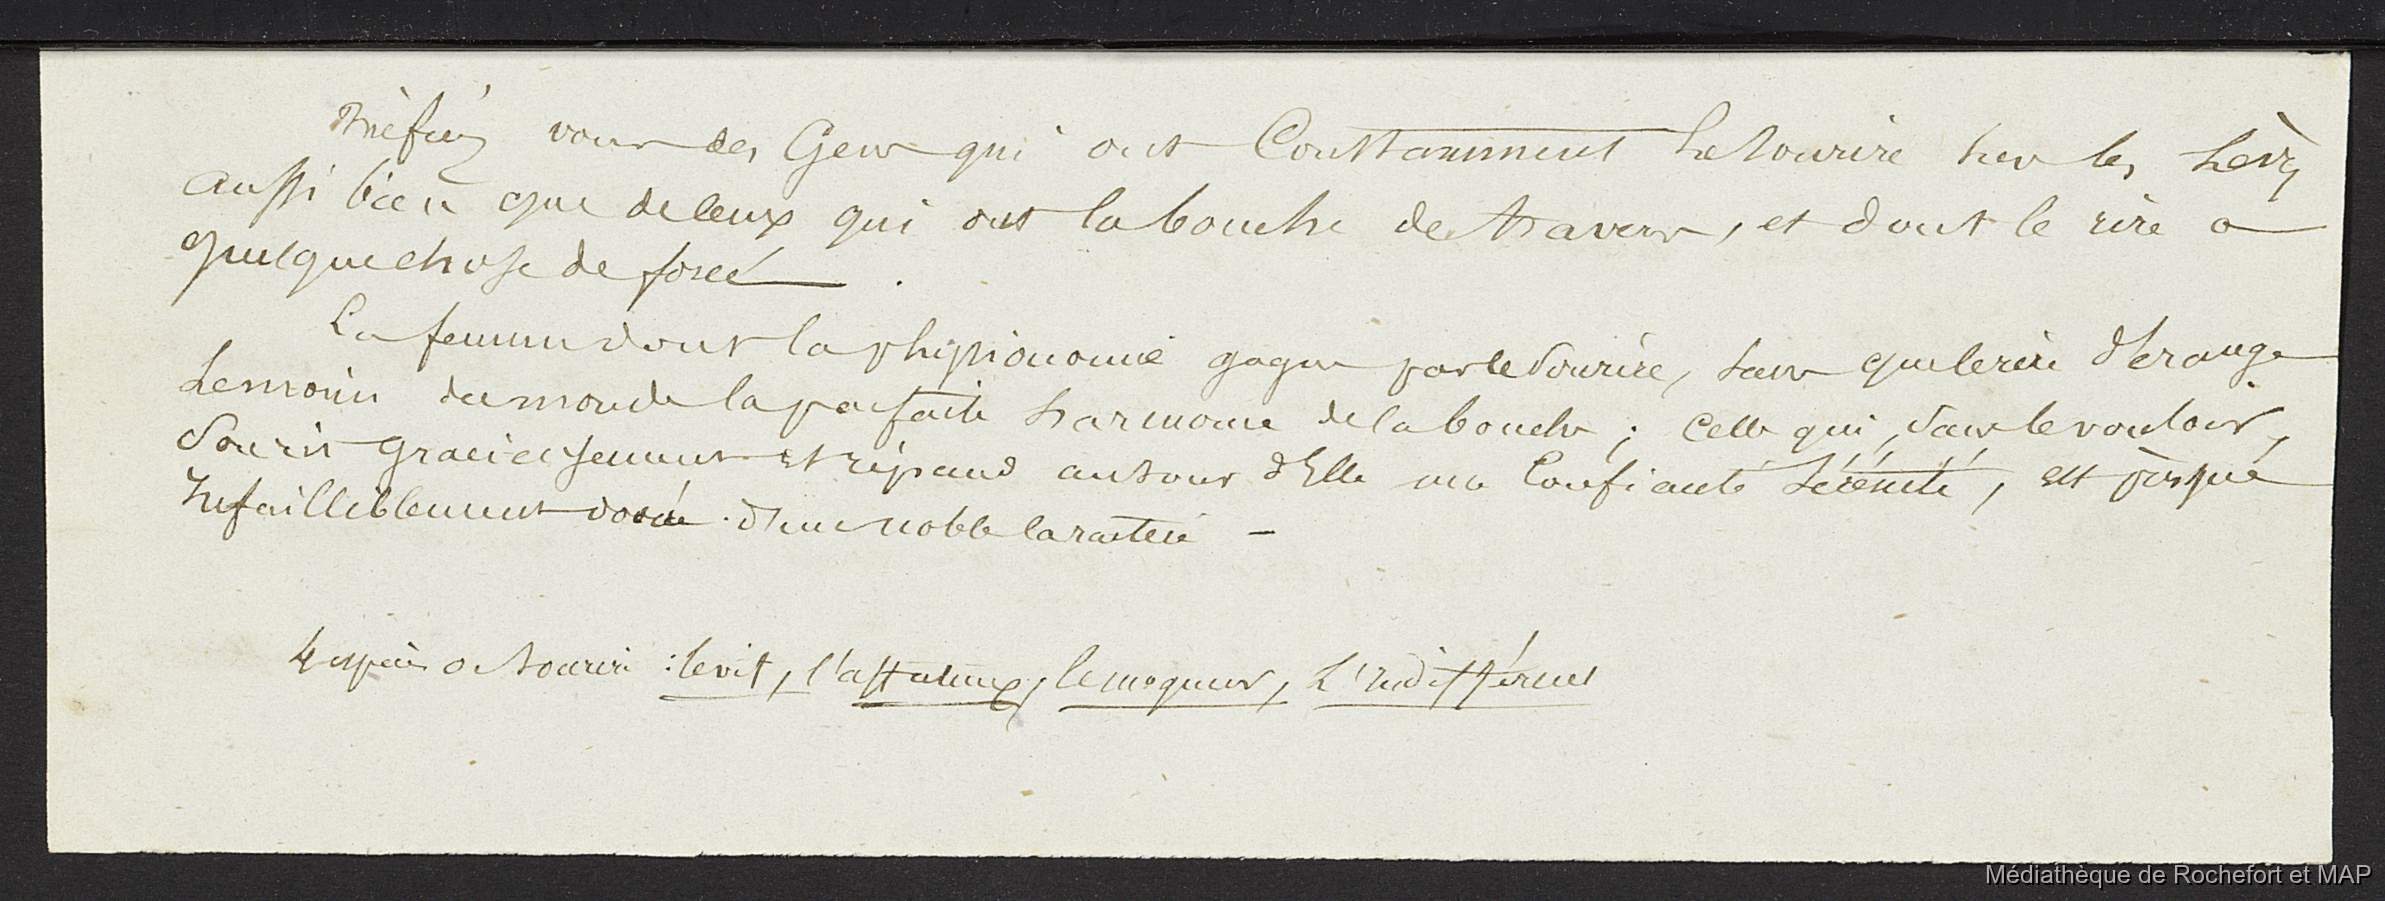 Méfiéz vous des Gens qui ont Constamment le sourire sur les lèvres
aussi bien que de ceux qui ont la bouche de travers, et dont le rire a
quelque chose de forcé.
La femme dont la physionomie gagne par le sourire, sans que le rire dérange
le moins du monde la parfaite harmonie de la bouche ; celle qui, sans le vouloir,
sourit gracieusement et répand autour d'Elle une confiante sérénité, est presque
infailliblement douée d'un noble caractère —
4 espèces de sourire : le vif, l'affectueux, le moqueur, L'indifférent
Médiathèque de Rochefort et MAP